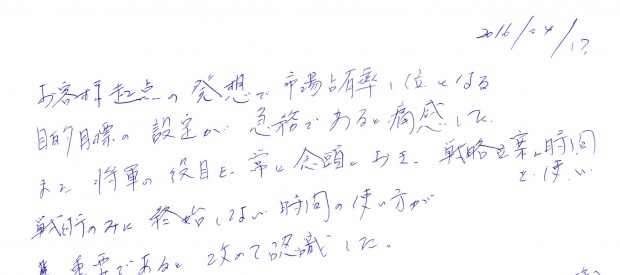 2016/04/17
お客様起点の発想で市場占有率1位となる
目的目標の設定が急務であると痛感した。
また将軍の役目を常に念頭におき、戦略立案に時間を使い
戦術のみに終始しない時間の使い方が
重要であると改めて認識した。